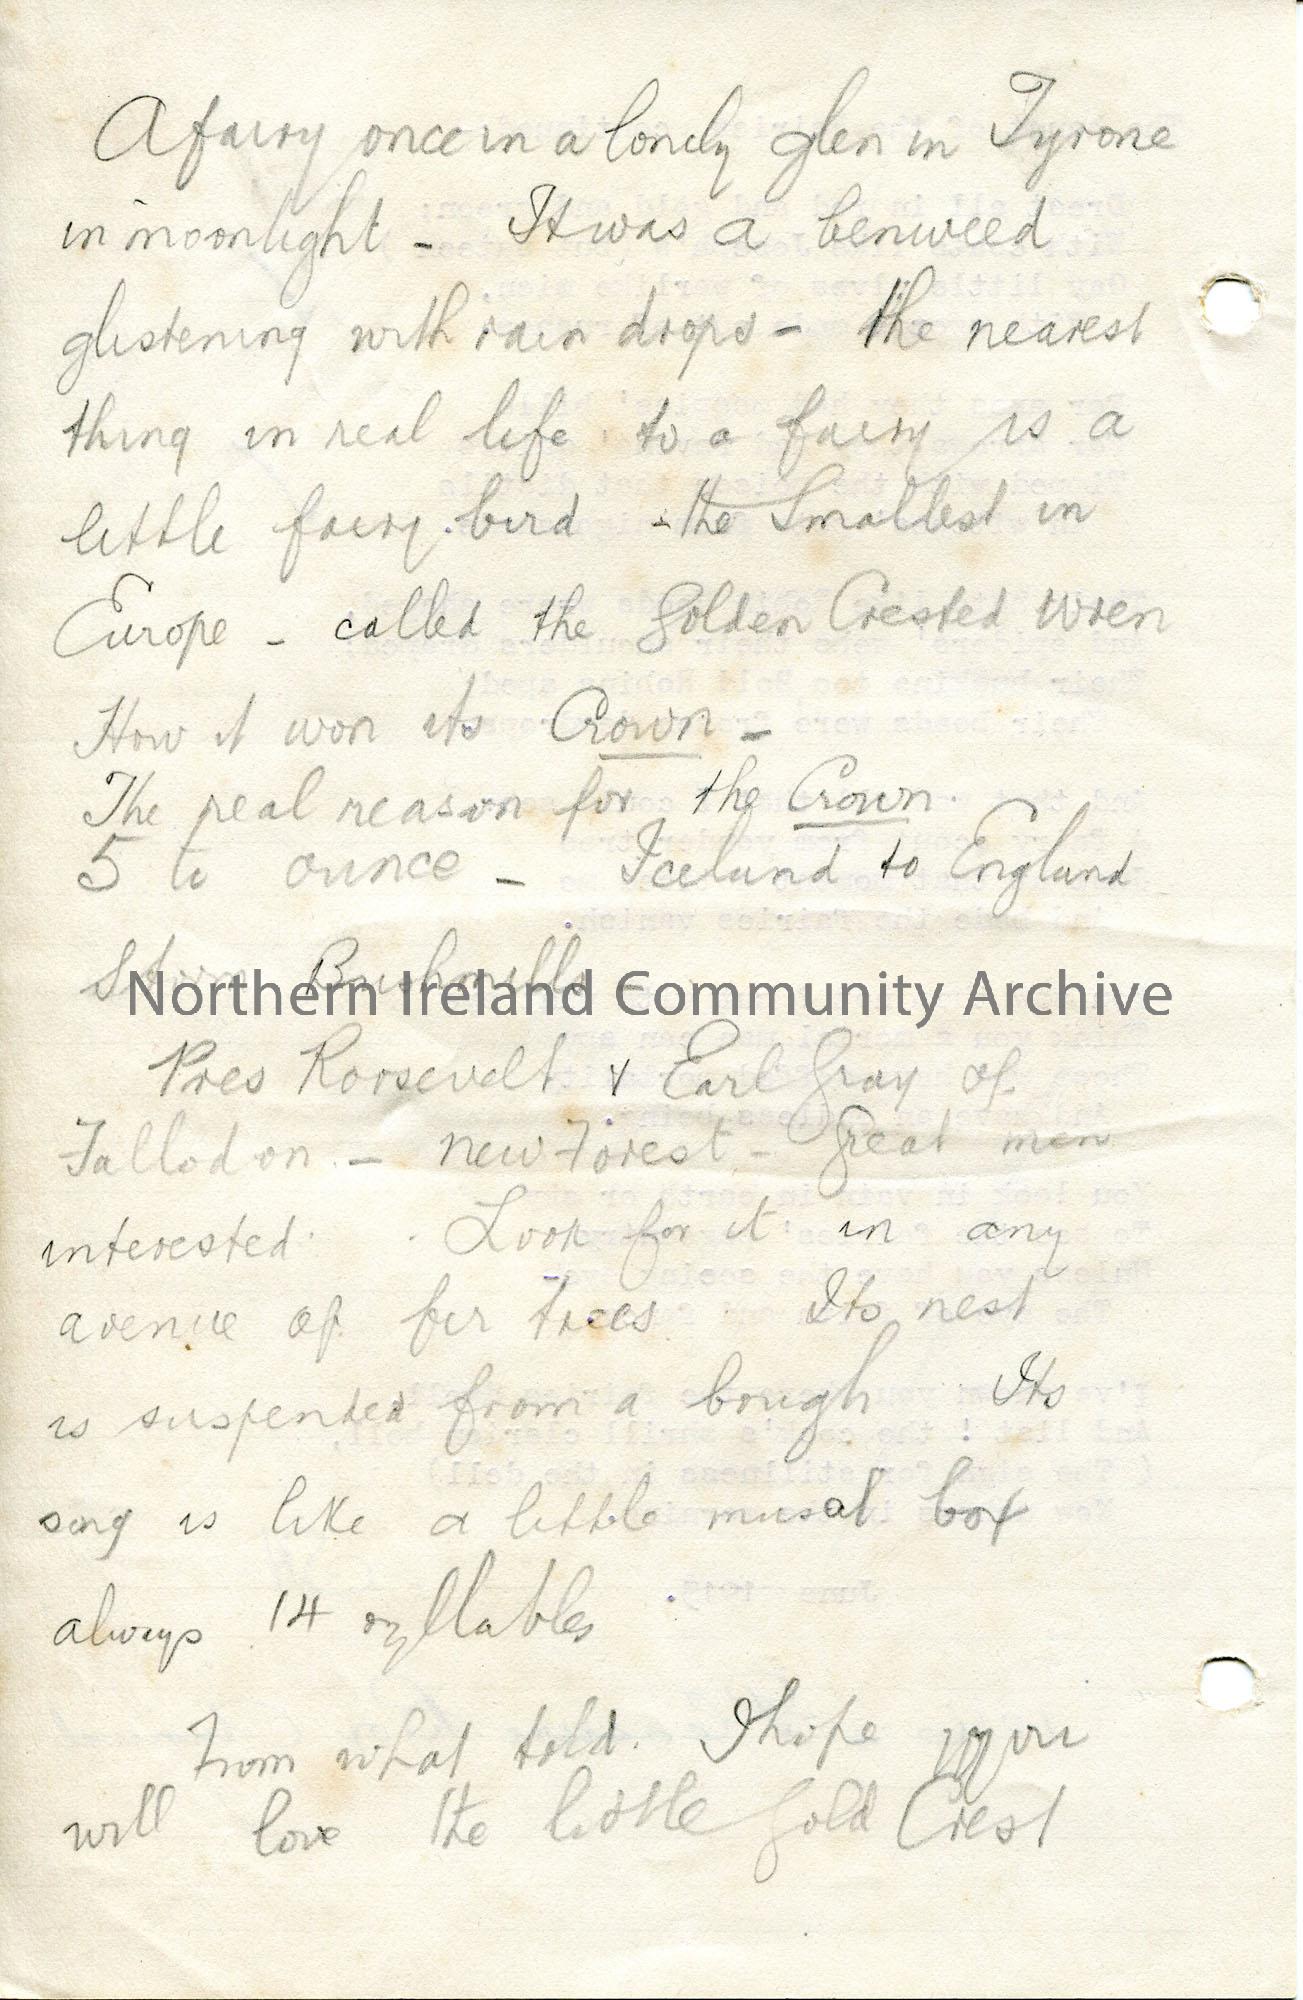 A fairy once in a lonely glen in Tyrone
in moonlight - It was a benweed
glistening with rain drops - the nearest
thing in real life to a fairy is a
little fairy bird - the smallest in
Europe - called the Golden Crested Wren
How it won its Crown -
The real reason for the Crown.
5 to ounce - Iceland to England
Storm Bushmills -
Northern Ireland Community Archive
Pres Roosevelt & Earl Gray of
Fallodon - New Forest - Great men
interested. Look for it in any
avenue of fir trees Its nest
is suspended from a bough Its
song is like a little musal box
always 14 syllables
From what told. I hope you
will love the little Gold Crest